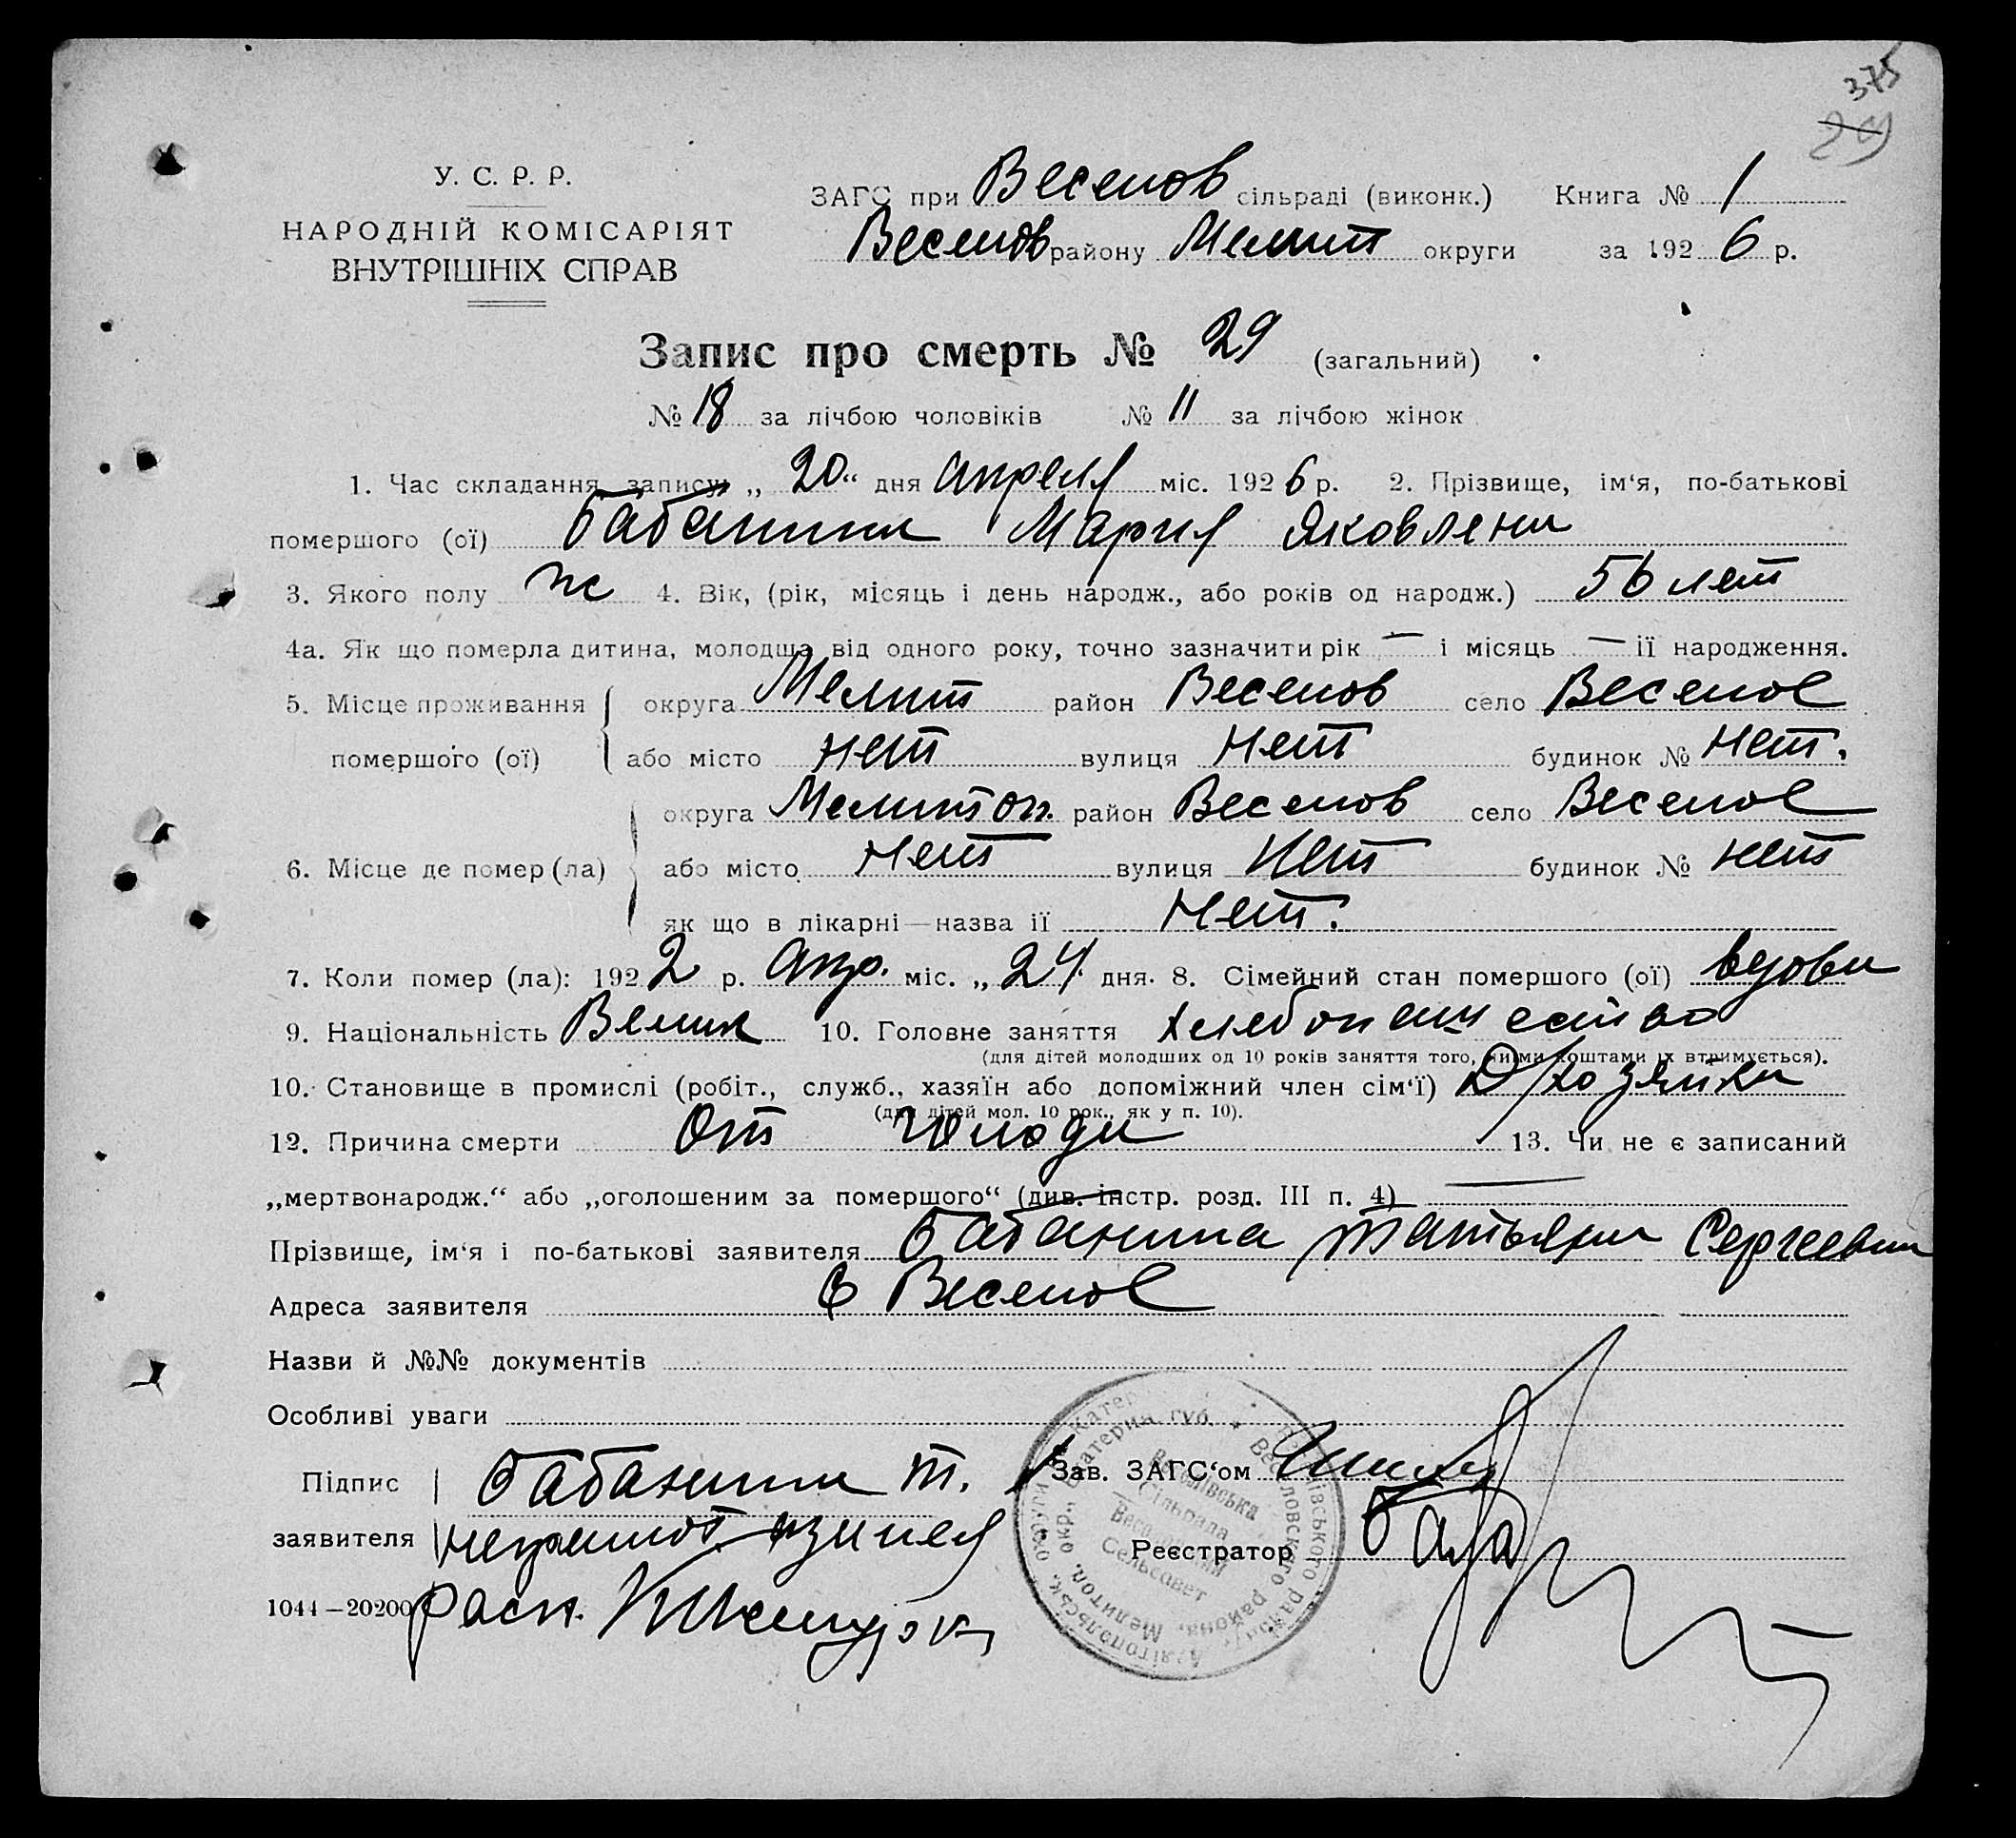 375
29
У. С. Р. Р.
НАРОДНІЙ КОМІСАРІЯТ
ВНУТРІШНІХ СПРАВ
ЗАГС при Веселов сільраді (виконк.) Книга № 1
Веселов району Мелит округи за 1926 р.
Запис про смерть № 29 (загальний)
№ 18 за лічбою чоловіків № 11 за лічбою жінок
1. Час складання запису „ 20 “ дня апреля міс. 1926 р. 2. Прізвище, ім‘я, по-батькові
помершого (ої) Бабанина Мария Яковлена
3. Якого полу ж 4. Вік, (рік, місяць і день народж., або років од народж.) 56 лет
4а. Як що померла дитина, молодша від одного року, точно зазначити рік — і місяць — її народження.
5. Місце проживання округа Мелит район Веселов село Веселое
помершого (ої) або місто нет вулиця нет будинок № нет.
округа Мелитоп. район Веселов село Веселое
6. Місце де помер (ла) або місто нет вулиця нет будинок № нет
як що в лікарні — назва її нет.
7. Коли помер (ла): 1922 р. апр. міс. „ 24 дня. 8. Сімейний стан помершого (ої) вдова
9. Національність Велик 10. Головне заняття хлебопашество
(для дітей молодших од 10 років заняття того, чиїми коштами їх втримується).
10. Становище в промислі (робіт., служб., хазяїн або допоміжний член сім‘ї) Д/хозяйка
(для дітей мол. 10 рок., як у п. 10).
12. Причина смерти От голода 13. Чи не є записаний
„мертвонародж.“ або „оголошеним за помершого“ (див. інстр. розд. III п. 4) —
Прізвище, ім‘я і по-батькові заявителя Бабанина Татьяна Сергеевна
Адреса заявителя С Веселое
Назви й №№ документів
Особливі уваги
Підпис Бабанина Т. Зав. ЗАГС‘ом
заявителя неграмот. Реєстратор
1044—20200 расп.
Веселовского района, Мелитоп. окр., Екатерин. губ.
Сільрада
Сельсовет